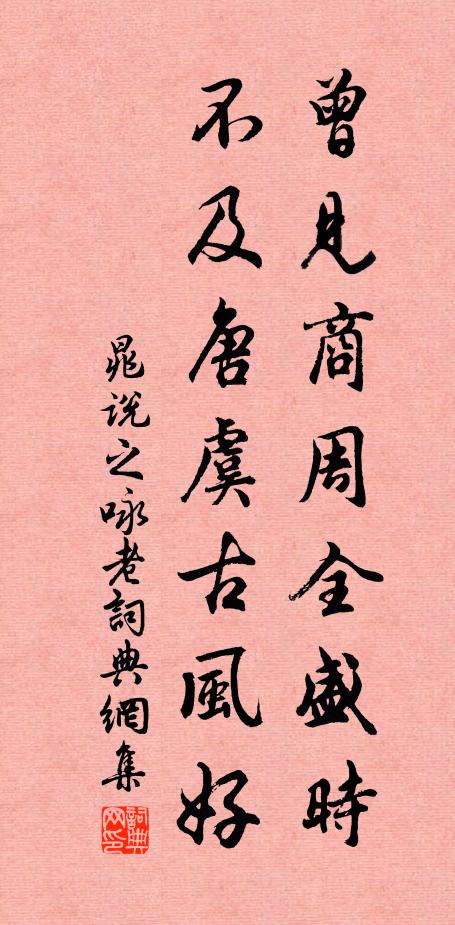 曾見商周全盛時
不及唐虞古風好
晁說之咏老詞典網集
詞典网印